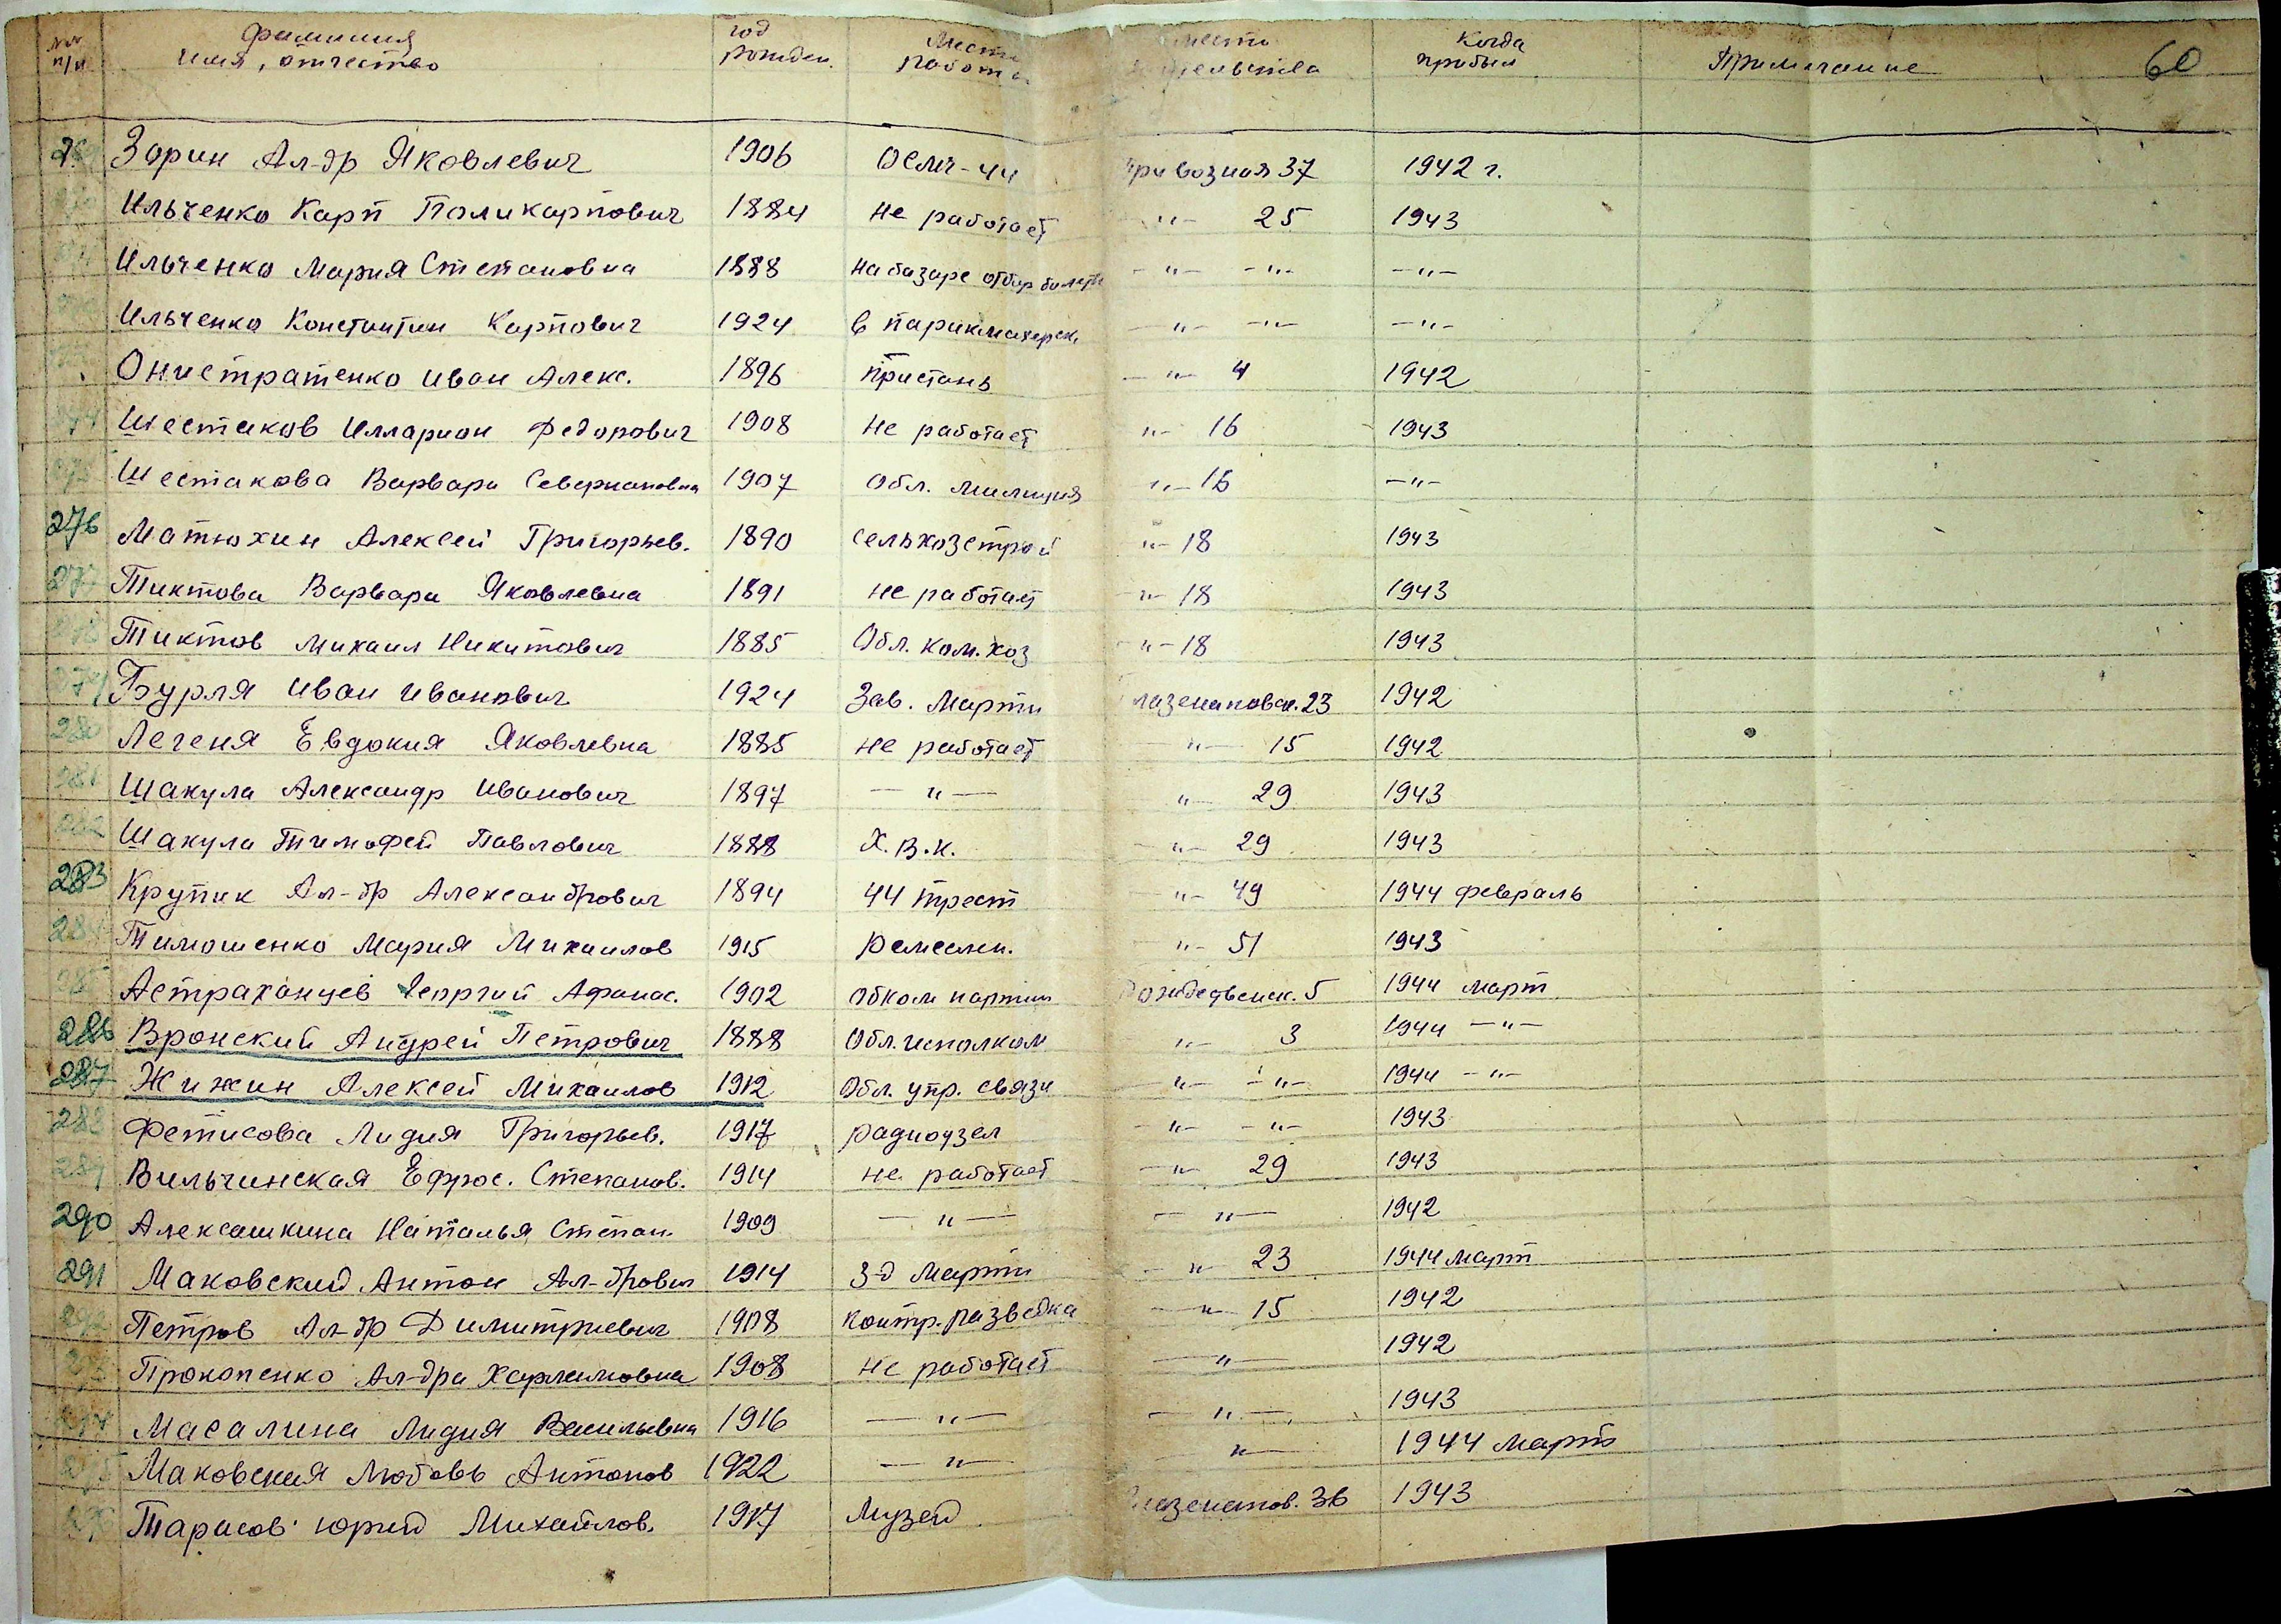 №№ п/п Фамилия имя, отчество год рожден. Место работы место жительства Когда прибыл Примечание 60
Зорин Ал-др Яковлевич 1906 ОСМЧ-44 Привозная 37 1942 г.
Ильченко Карп Поликарпович 1884 не работает -"- 25 1943
Ильченко Мария Степановна 1888 на базаре отбир билеты -"- -"- -"-
Ильченко Константин Карпович 1924 в парикмахерск. -"- -"- -"-
Онистратенко Иван Алекс. 1896 пристань -"- 4 1942
Шестаков Илларион Федорович 1908 не работает "- 16 1943
Шестакова Варвара Севериановна 1907 Обл. милиция "- 16 -"-
276 Матюхин Алексей Григорьев. 1890 сельхозстрой "- 18 1943
277 Тиктова Варвара Яковлевна 1891 не работает -"- 18 1943
278 Тиктов Михаил Никитович 1885 Обл. ком. хоз -"- 18 1943
279 Бурля Иван Иванович 1924 Зав. Марти Глазенаповск. 23 1942
280 Легеня Евдокия Яковлевна 1885 не работает -"- 15 1942
281 Шакула Александр Иванович 1897 -"- "- 29 1943
282 Шакула Тимофей Павлович 1888 Х.В.К. -"- 29 1943
283 Крупик Ал-др Александрович 1894 44 трест -"- 49 1944 февраль
284 Тимошенко Мария Михаилов 1915 Ремеслен. -"- 51 1943
285 Астраханцев Георгий Афанас. 1902 обком партии Рождественск. 5 1944 март
286 Вронский Андрей Петрович 1888 Обл. исполком "- 3 1944 -"-
287 Жижин Алексей Михаилов 1912 Обл. упр. связи -"- -"- 1944 -"-
288 Фетисова Лидия Григорьев. 1917 радиоузел -"- -"- 1943
289 Вильчинская Ефрос. Степанов. 1914 не работает -"- 29 1943
290 Алексашкина Наталья Степан. 1909 -"- -"- 1942
291 Маковский Антон Ал-дрович 1914 з-д Марти -"- 23 1944 март
292 Петров Ал-др Димитриевич 1908 контр. разведка -"- 15 1942
293 Прокопенко Ал-дра Харламовна 1908 не работает -"- 1942
294 Масалина Лидия Васильевна 1916 -"- -"- 1943
295 Маковская Любовь Антонов 1922 -"- "- 1944 март
Тарасов Юрий Михайлов. 1917 Музей Глазенапов. 36 1943